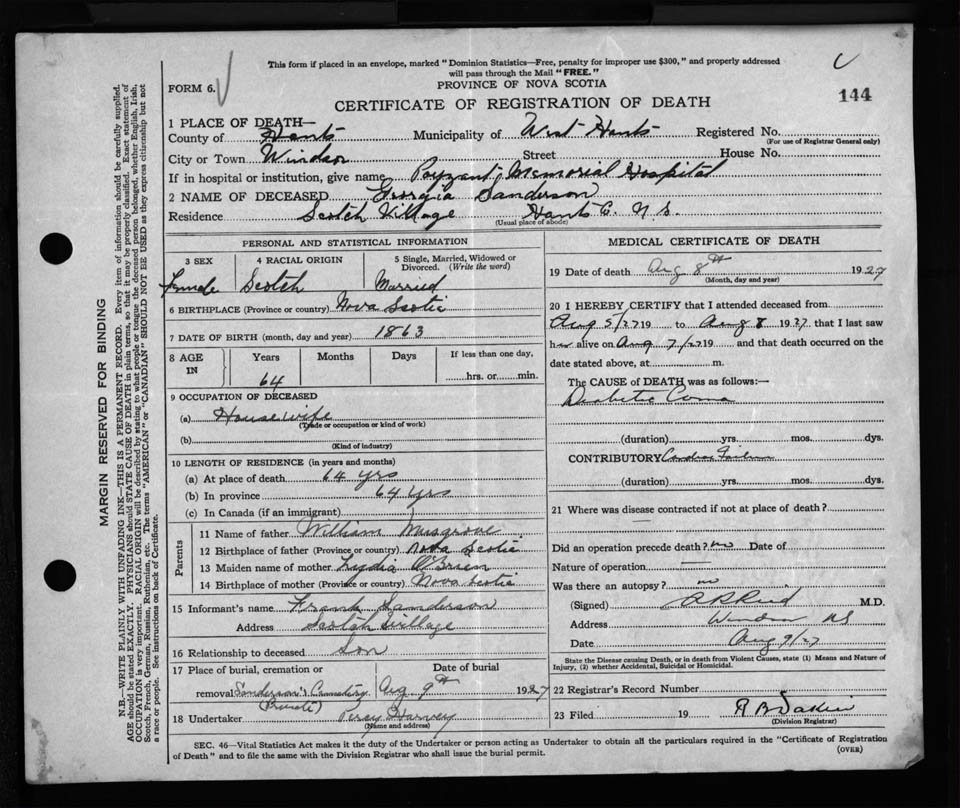 This form if placed in an envelope, marked "Dominion Statistics—Free, penalty for improper use $300," and properly addressed
will pass through the Mail "FREE."
FORM 6.
PROVINCE OF NOVA SCOTIA
CERTIFICATE OF REGISTRATION OF DEATH
144
1 PLACE OF DEATH—
County of Hants Municipality of West Hants Registered No.
(For use of Registrar General only)
City or Town Windsor Street House No.
If in hospital or institution, give name Payzant Memorial Hospital
2 NAME OF DECEASED Georgia Sanderson
Residence Scotch Village Hants Co. N.S.
(Usual place of abode)
PERSONAL AND STATISTICAL INFORMATION
3 SEX 4 RACIAL ORIGIN 5 Single, Married, Widowed or Divorced. (Write the word)
Female Scotch Married
6 BIRTHPLACE (Province or country) Nova Scotia
7 DATE OF BIRTH (month, day and year) 1863
8 AGE IN Years Months Days If less than one day,
64 hrs. or min.
9 OCCUPATION OF DECEASED
(a) Housewife
(Trade or occupation or kind of work)
(b)
(Kind of industry)
10 LENGTH OF RESIDENCE (in years and months)
(a) At place of death 64 yrs
(b) In province 64 yrs
(c) In Canada (if an immigrant)
Parents
11 Name of father William Musgrove
12 Birthplace of father (Province or country) Nova Scotia
13 Maiden name of mother Lydia O'Brien
14 Birthplace of mother (Province or country) Nova Scotia
15 Informant's name Frank Sanderson
Address Scotch Village
16 Relationship to deceased Son
17 Place of burial, cremation or Date of burial
removal Sanderson's Cemetery Aug 9th 1927
(Private)
18 Undertaker Percy Harvey
(Name and address)
MEDICAL CERTIFICATE OF DEATH
19 Date of death Aug 8th 1927
(Month, day and year)
20 I HEREBY CERTIFY that I attended deceased from
Aug 5/27 19 to Aug 8 1927 that I last saw
her alive on Aug 7/27 19 and that death occurred on the
date stated above, at m.
The CAUSE of DEATH was as follows:—
Diabetic Coma
(duration) yrs. mos. dys.
CONTRIBUTORY Cardiac Failure
(duration) yrs. mos. dys.
21 Where was disease contracted if not at place of death?
Did an operation precede death? no Date of
Nature of operation —
Was there an autopsy? no
(Signed) M.D.
Address Windsor NS
Date Aug 9/27
State the Disease causing Death, or in death from Violent Causes, state (1) Means and Nature of
Injury, (2) whether Accidental, Suicidal or Homicidal.
22 Registrar's Record Number
23 Filed 19
(Division Registrar)
SEC. 46—Vital Statistics Act makes it the duty of the Undertaker or person acting as Undertaker to obtain all the particulars required in the "Certificate of Registration
of Death" and to file the same with the Division Registrar who shall issue the burial permit.
(OVER)
MARGIN RESERVED FOR BINDING
N.B.—WRITE PLAINLY WITH UNFADING INK—THIS IS A PERMANENT RECORD. Every item of information should be carefully supplied.
AGE should be stated EXACTLY. PHYSICIANS should STATE CAUSE OF DEATH in plain terms, so that it may be properly classified. Exact statement of
OCCUPATION is very important. RACIAL ORIGIN will be described by stating to what people or tongue the deceased person belonged, whether English, Irish,
Scotch, French, German, Russian, Ruthenian, etc. The terms "AMERICAN" or "CANADIAN" SHOULD NOT BE USED as they express citizenship but not
a race or people. See instructions on back of Certificate.